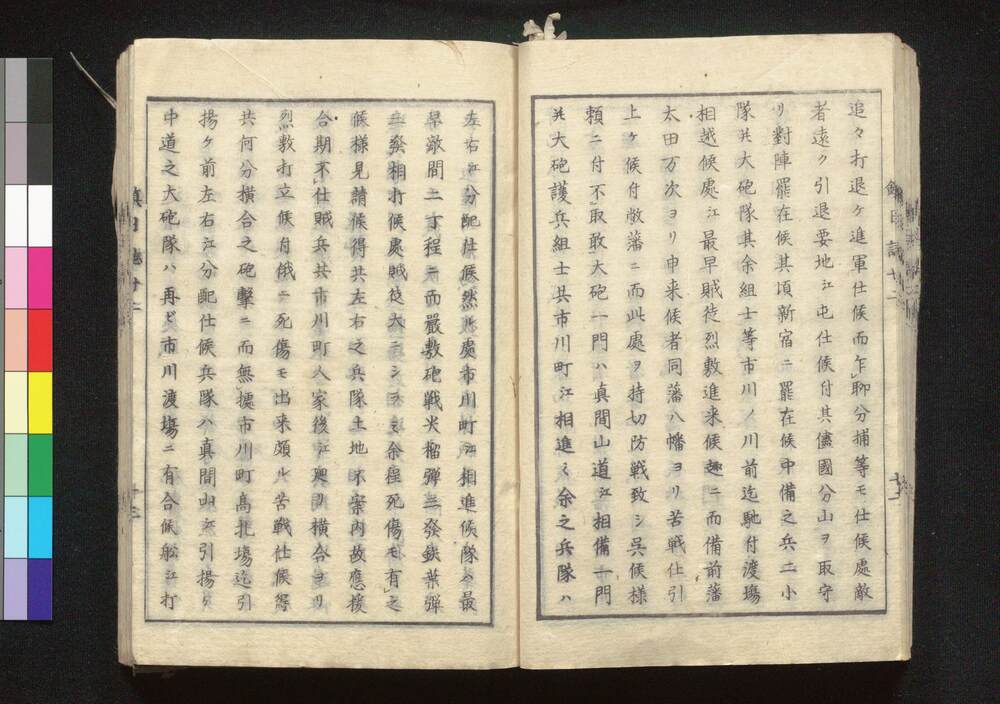 追々打退ケ進軍仕候而乍聊分捕等モ仕候處敵
者遠ク引退要地江屯仕候付其儘國分山ヲ取守
リ對陣罷在候其頃新宿ニ罷在候中備之兵二小
隊共大砲隊其余組士等市川ノ川前迄馳付渡場
相越候處江最早賊徒烈敷進来候趣ニ而備前藩
太田万次ヨリ申来候者同藩八幡ヨリ苦戦仕引
上ケ候付敝藩ニ而此處ヲ持切防戦致シ呉候様
頼ニ付不取敢大砲一門ハ真間山道江相備一門
共大砲護兵組士共市川町江相進ミ余之兵隊ハ
左右江分配仕候然ル處市川町江相進候隊ハ最
早敵間二丁程ニ而嚴敷砲戦火榴弾三發鉄葉弾
三發相打候處賊徒大ニシラミ余程死傷モ有之
候様見請候得共左右之兵隊土地不案内故應援
合期不仕賊兵共市川町人家後江廻リ横合ヨリ
烈敷打立候付俄ニ死傷モ出来頗ル苦戦仕候得
共何分横合之砲撃ニ而無據市川町高札場迄引
揚ケ前左右江分配仕候兵隊ハ真間山江引揚ケ
中道之大砲隊ハ再ビ市川渡場ニ有合候舩江打